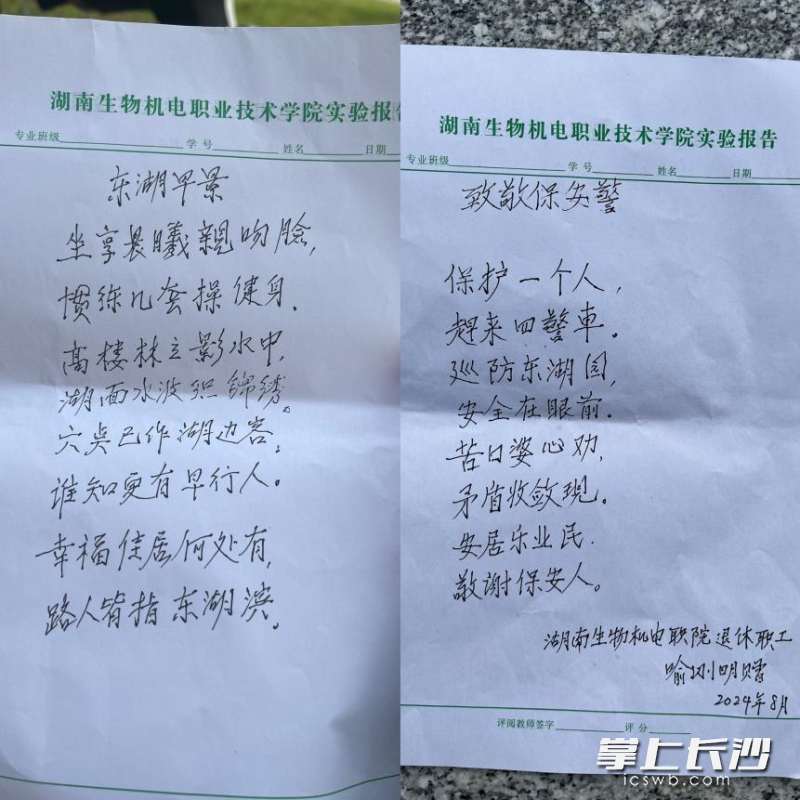 湖南生物机电职业技术学院实验报告
专业班级 学号 姓名 日期
东湖早景
坐享晨曦親吻臉，
惯练几套操健身．
高楼林立影水中，
湖面水波织锦绣。
六点已作湖边客，
谁知更有早行人。
幸福佳居何处有，
路人皆指东湖滨。
湖南生物机电职业技术学院实验报告
专业班级 学号 姓名 日期
致敬保安警
保护一个人，
趕来四警車。
巡防东湖园，
安全在眼前．
苦口婆心劝，
矛盾收敛现。
安居乐业民．
敬谢保安人。
湖南生物机电职院退休职工
喻刚明赠
2024年8月
评阅教师签字 评分
掌上长沙
icswb.com